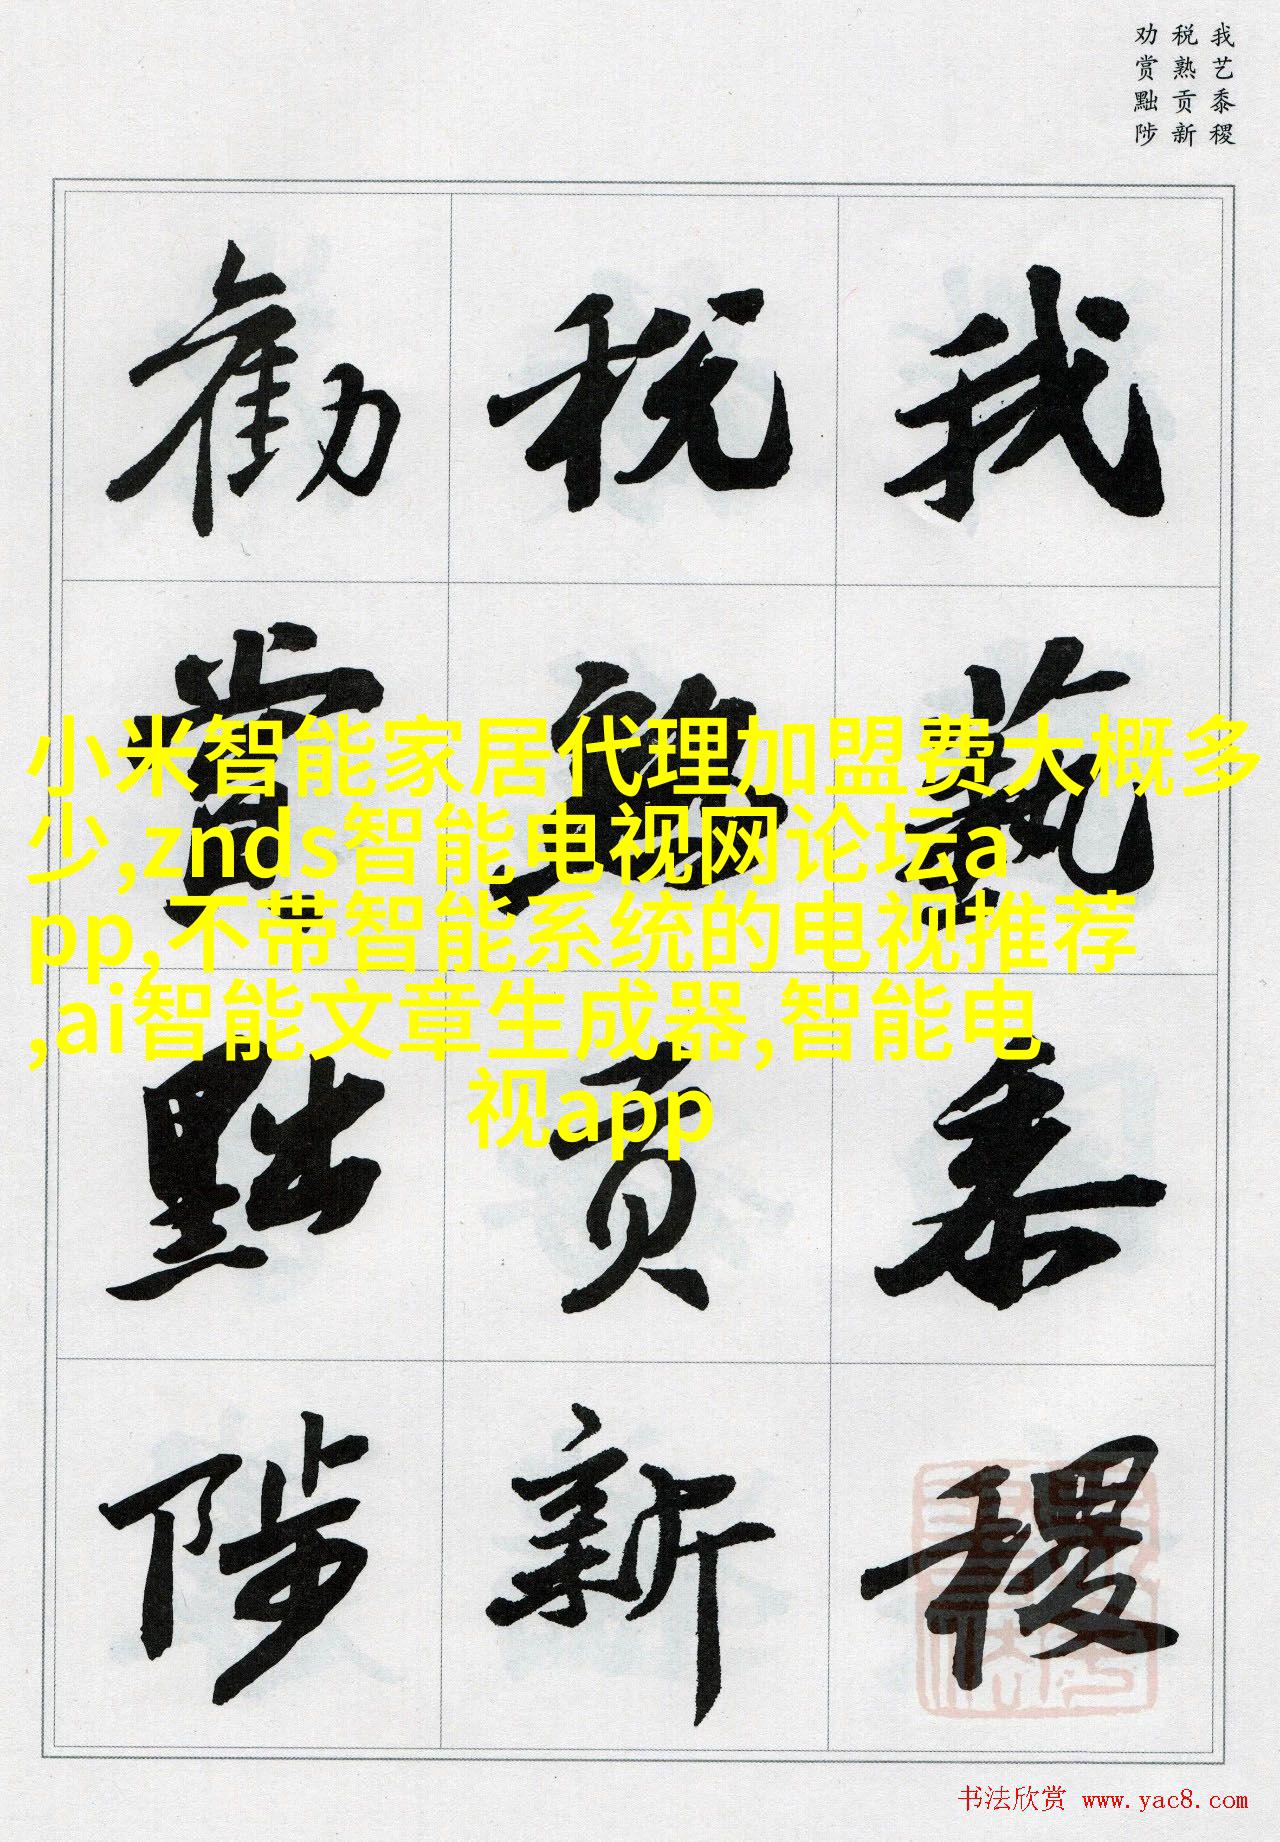 我艺黍稷
税熟贡新
劝赏黜陟
我藝黍稷
税熟貢新
勸賞黜陟
小米智能家居代理加盟费大概多
少,znds智能电视网论坛a
pp,不带智能系统的电视推荐
,ai智能文章生成器,智能电
视app
书法欣赏 www.yac8.com